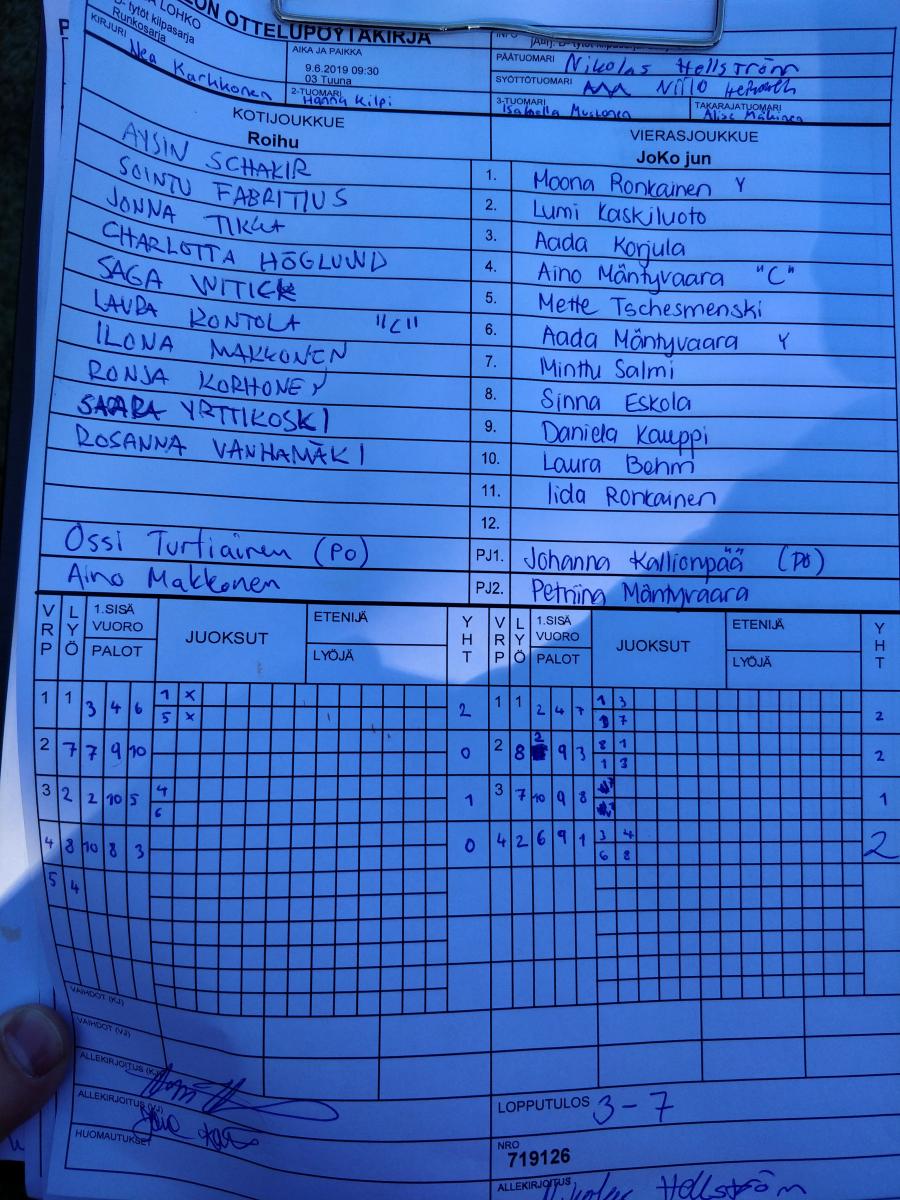 LOHKO
D- tytöt kilpasarja
Runkosarja
OTTELUPÖYTÄKIRJA
KIRJURI
Nea Karhkonen
AIKA JA PAIKKA
9.6.2019 09:30
03 Tuuna
2-TUOMARI
Hannu Kilpi
PÄÄTUOMARI
Nikolas Hellström
SYÖTTÖTUOMARI
Niilo
3-TUOMARI
Isabella Mustonen
TAKARAJATUOMARI
KOTIJOUKKUE
Roihu
VIERASJOUKKUE
JoKo jun
AYSIN SCHAKIR 1. Moona Ronkainen Y
SOINTU FABRITIUS 2. Lumi Kaskiluoto
JONNA TIKKA 3. Aada Korjula
CHARLOTTA HÖGLUND 4. Aino Mäntyvaara "C"
SAGA WITICK 5. Mette Tschesmenski
LAURA KONTOLA "C" 6. Aada Mäntyvaara Y
ILONA MAKKONEN 7. Minttu Salmi
RONJA KORHONEN 8. Sinna Eskola
SAARA YRTTIKOSKI 9. Daniela Kauppi
ROSANNA VANHAMÄKI 10. Laura Bohm
11. Iida Ronkainen
12.
Ossi Turtiainen (PO) PJ1. Johanna Kallionpää (PO)
Aino Makkonen PJ2. Petriina Mäntyvaara
VRP LYÖ 1.SISÄ VUORO PALOT JUOKSUT ETENIJÄ LYÖJÄ YHT VRP LYÖ 1.SISÄ VUORO PALOT JUOKSUT ETENIJÄ LYÖJÄ YHT
1 1 3 4 6 1 x 2 1 1 2 4 7 1 3 2
5 x 9 7
2 7 7 9 10 0 2 8 2 9 3 8 1 2
1 3
3 2 2 10 5 4 1 3 7 10 9 8 1
6
4 8 10 8 3 0 4 2 6 9 1 3 4 2
6 8
5 4
VAIHDOT (KJ)
VAIHDOT (VJ)
ALLEKIRJOITUS (KJ)
ALLEKIRJOITUS (VJ)
HUOMAUTUKSET
LOPPUTULOS 3-7
NRO
719126
ALLEKIRJOITUS Nikolas Hellström